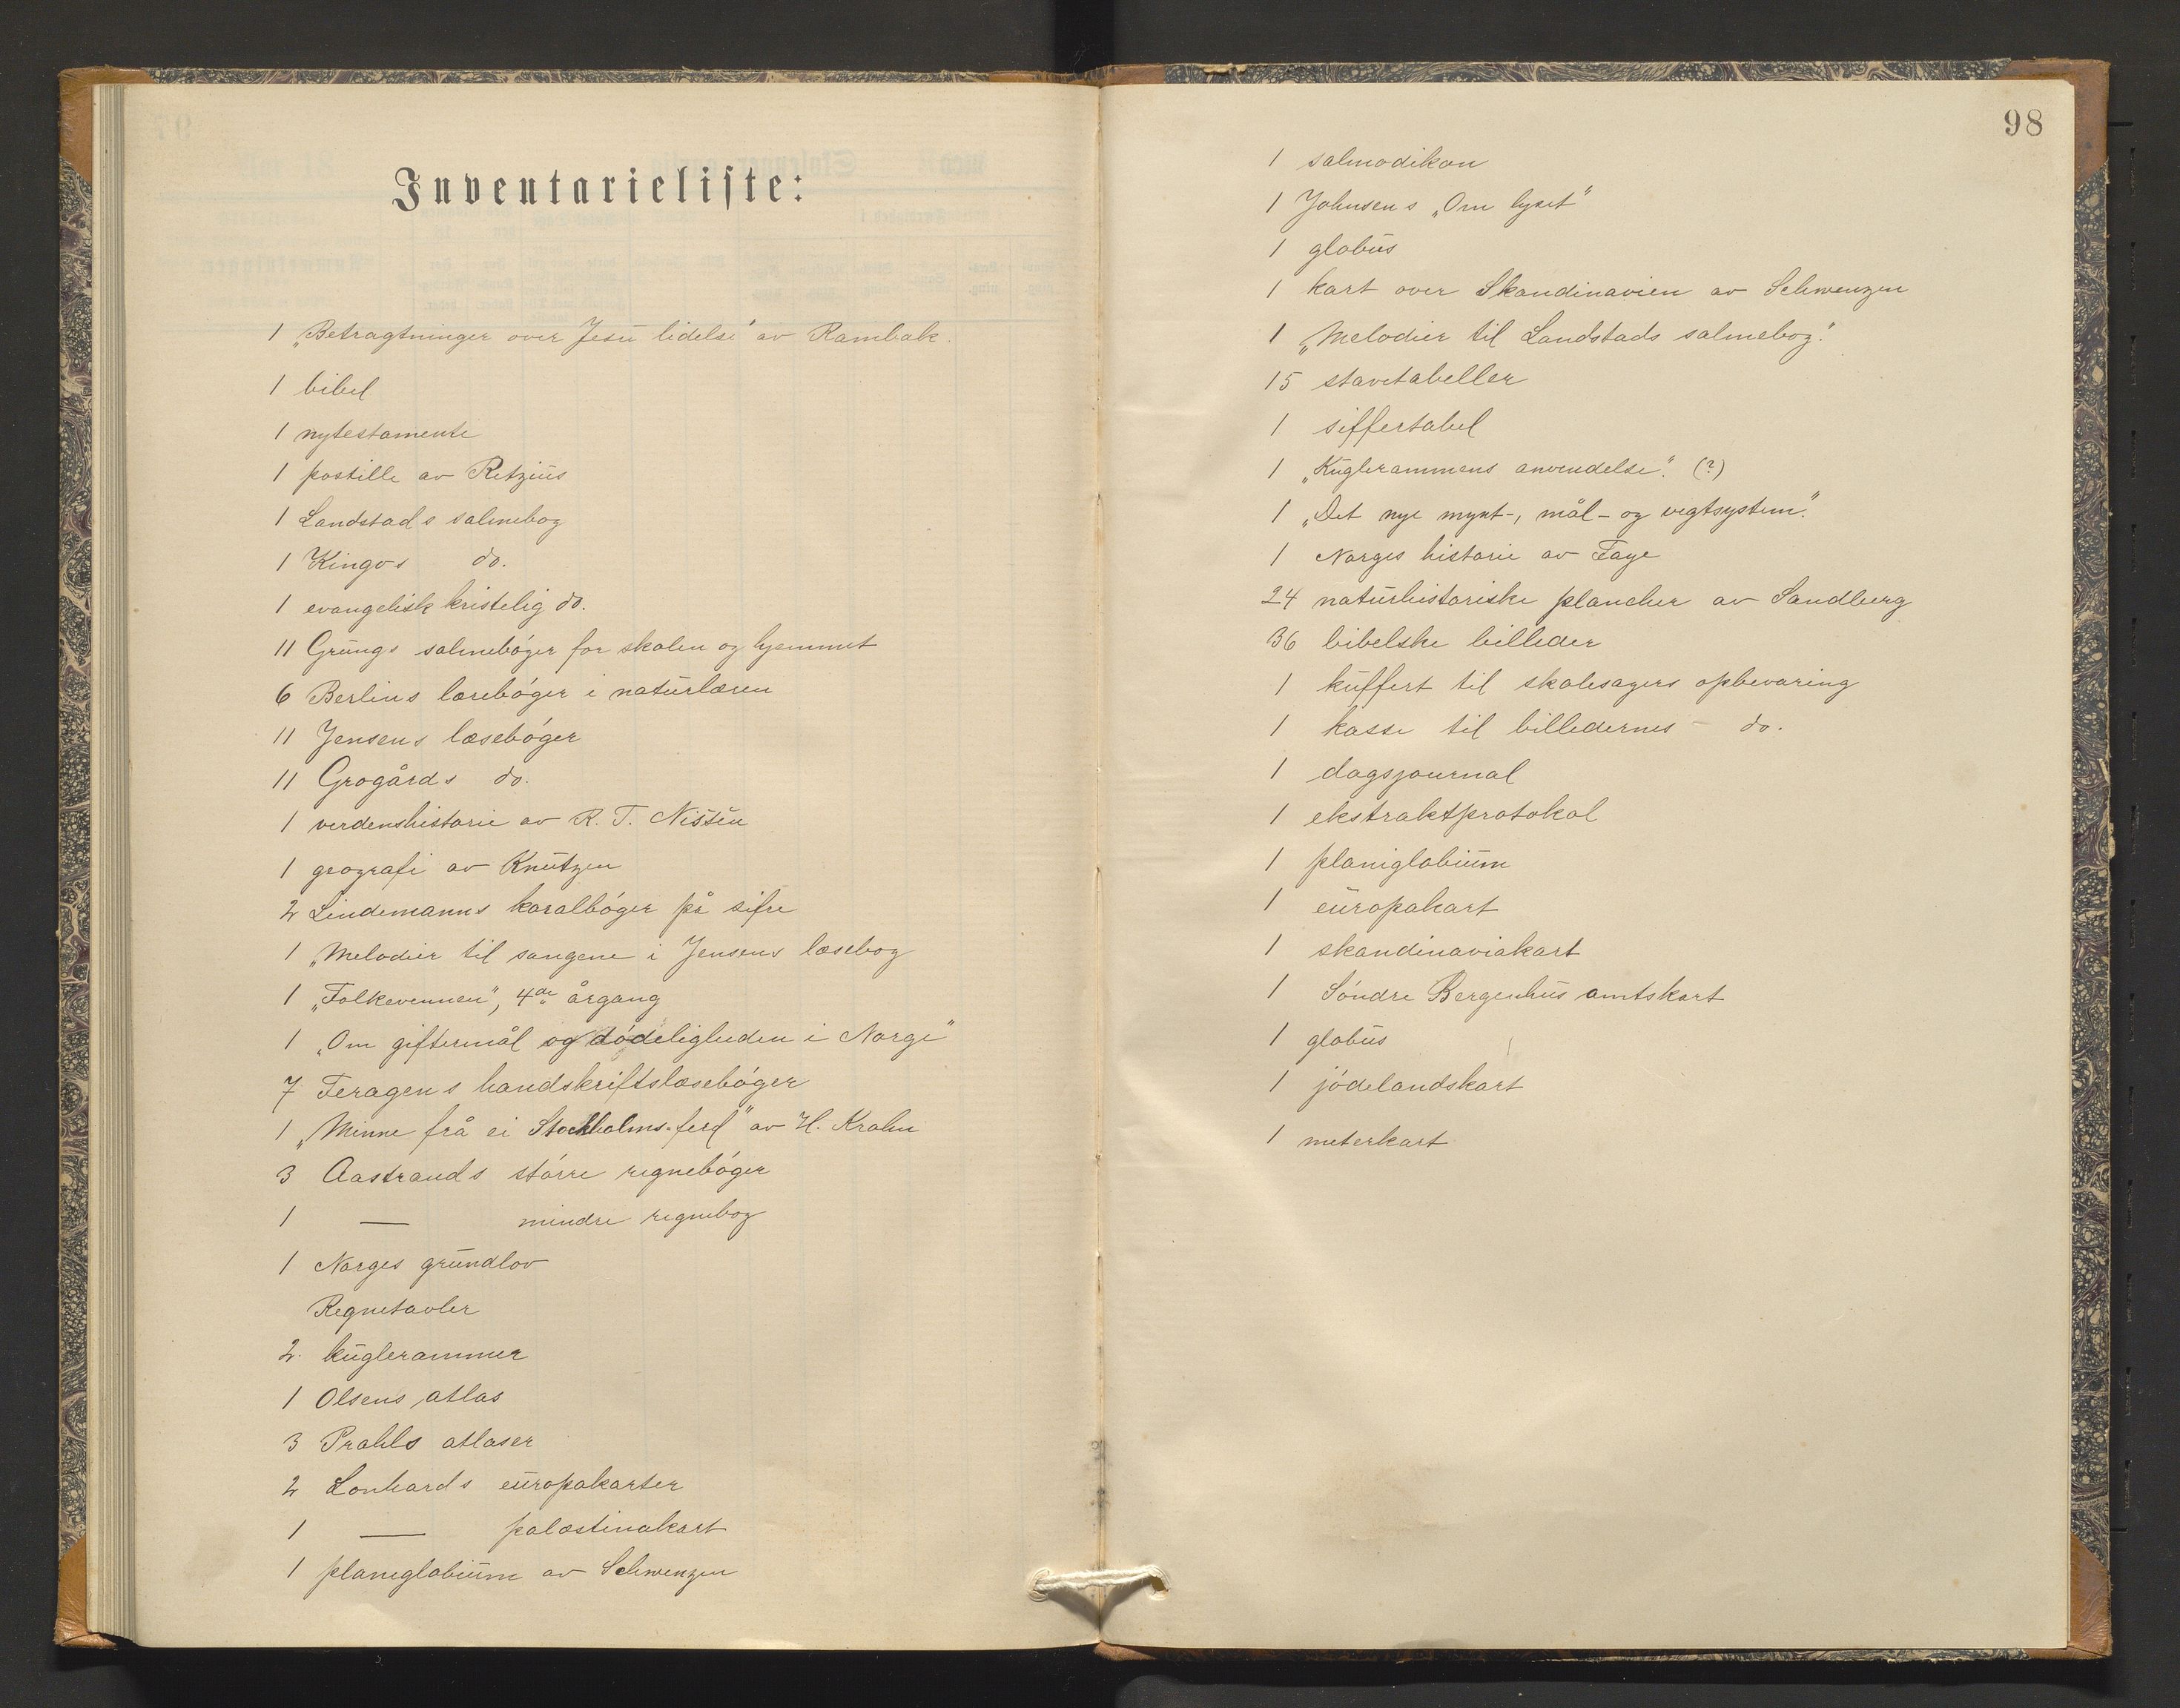 Inventarieliste:
1 „Betragtninger over Jesu lidelse" av Rambak.
1 bibel
1 nytestamente
1 postille av Retzius
1 Landstads salmebog
1 Kingos do.
1 evangelisk kristelig do.
11 Grungs salmebóger for skolen og hjemmet
6 Berlins lærebóger i naturlæren
11 Jensens læsebóger
11 Grogårds do.
1 verdenshistorie av R. T. Nissen
1 geografi av Knutzen
2 Lindemanns koralbóger på sifre
1 „Melodier til sangene i Jensens læsebog
1 „Folkevennen", 4de årgang
1 „Om giftermål og dódeligheden i Norge"
7 Feragens handskriftslæsebóger
1 „Minne frå ei Stockholms-ferd" av H. Krohn
3 Aastrands stórre regnebóger
1 — mindre regnebog
1 Norges grundlov
Regnetavler
2. kuglerammer
1 Olsens atlas
3 Prahls atlaser
2 Lonhards europakarter
1 — palæstinakart
1 planiglobium av Schwenzen
98
1 salmodikon
1 Johnsens „Om lyset"
1 globus
1 kart over Skandinavien av Schwenzen
1 „Melodier til Landstads salmebog."
15 stavetabeller
1 siffertabel
1 „Kuglerammens anvendelse". (?)
1 „Det nye mynt-, mål- og vegtsystem."
1 Norges historie av Faye
24 naturhistoriske plancher av Sandberg
36 bibelske billeder
1 kuffert til skolesagers opbevaring
1 kasse til billedernes – do.
1 dagsjournal
1 ekstraktprotokol
1 planiglobium
1 europakart
1 skandinaviakart
1 Sóndre Bergenhus amtskart
1 globus
1 jódelandskart
1 meterkart